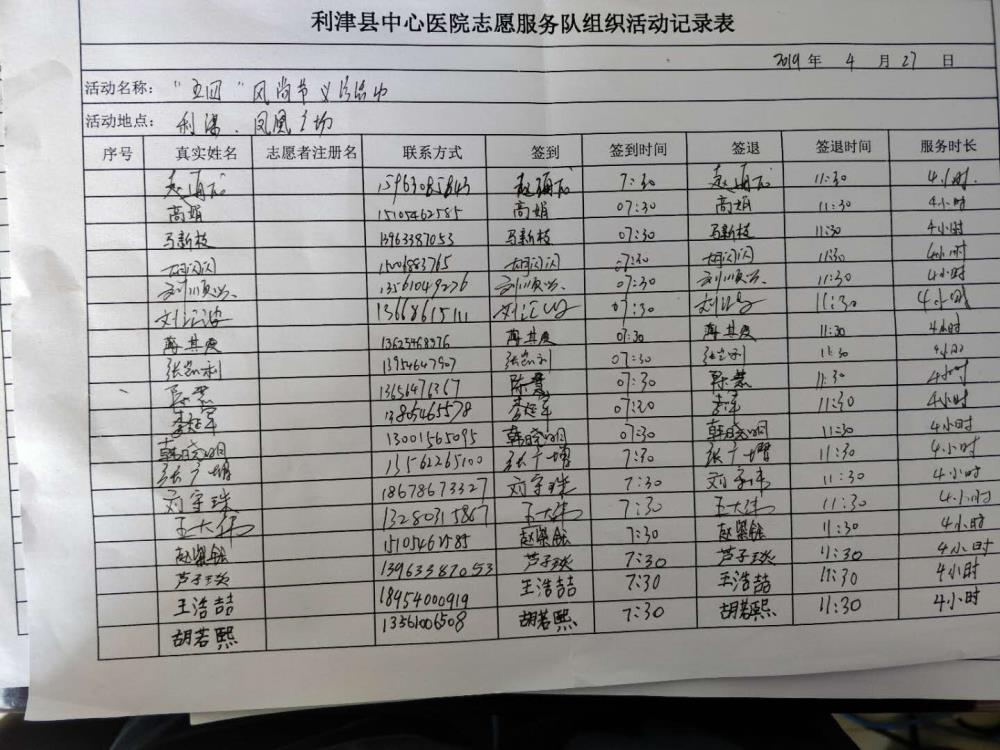 利津县中心医院志愿服务队组织活动记录表
2019 年 4 月 27 日
活动名称: "五四"风尚节义诊活动
活动地点: 利津、凤凰广场
序号 真实姓名 志愿者注册名 联系方式 签到 签到时间 签退 签退时间 服务时长
15963085843 7:30 11:30 4小时.
高娟 15105462585 高娟 07:30 高娟 11:30 4小时
马新枝 13963387053 马新枝 07:30 马新枝 11:30 4小时
胡闪闪 胡闪闪 07:30 胡闪闪 11:30 4小时
13561049276 07:30 11:30 4小时
13668615111 07:30 11:30 4小时
蒋其俊 13625468976 蒋其俊 07:30 蒋其俊 11:30 4小时
张凯利 13954647907 张凯利 07:30 张凯利 11:30 4小时
陈慧 13656471367 陈慧 07:30 陈慧 11:30 4小时
李延军 13805465578 李延军 07:30 11:30 4小时
韩晓明 13001565095 韩晓明 07:30 韩晓明 11:30 4小时
张广增 13562265100 张广增 7:30 张广增 11:30 4小时
刘宇珠 18678673327 刘宇珠 7:30 11:30 4小时
王大伟 13280315867 王大伟 7:30 王大伟 11:30 4小时
赵梁钰 15105462585 赵梁钰 7:30 赵梁钰 11:30 4小时
芦子琰 13963387053 芦子琰 7:30 芦子琰 11:30 4小时
王浩喆 18954000919 王浩喆 7:30 王浩喆 11:30 4小时
胡若熙 13561006508 胡若熙 7:30 胡若熙 11:30 4小时